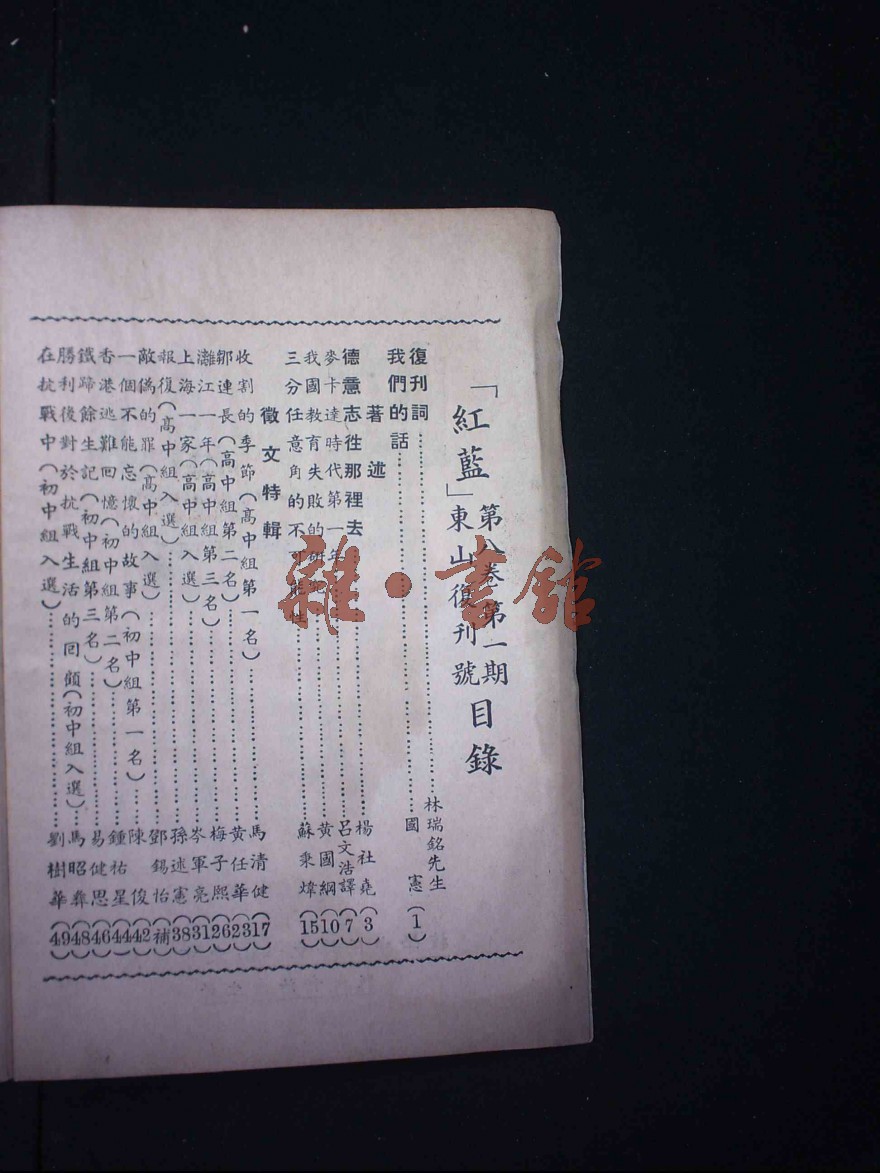 「紅藍」第八卷第一期
東山復刊號
目錄
復刊詞 林瑞銘先生
我們的話 國憲 (1)
著述
德意志往那裡去 楊社堯 (3)
麥卡達時代第一年 呂文浩譯 (7)
我國教育失敗的 黃國綱 (10)
三分任意角的不可能性 蘇秉煒 (15)
徵文特輯
收割的季節(高中組第一名) 馬清健 (17)
鄒連長(高中組第二名) 黃任華 (23)
灕江一年(高中組第三名) 梅子熙 (26)
上海一家(高中組入選) 岑軍亮 (31)
報復(高中組入選) 孫述憲 (38)
敵偽的罪(高中組入選) 鄧錫怡 (補)
一個不能忘懷的故事(初中組第一名) 陳俊 (42)
香港逃難回憶(初中組第二名) 鍾祐星 (44)
鐵蹄餘生記(初中組第三名) 易健思 (46)
勝利後對於抗戰生活的回顧(初中組入選) 馬昭彝 (48)
在抗戰中(初中組入選) 劉樹華 (49)
雜·書館